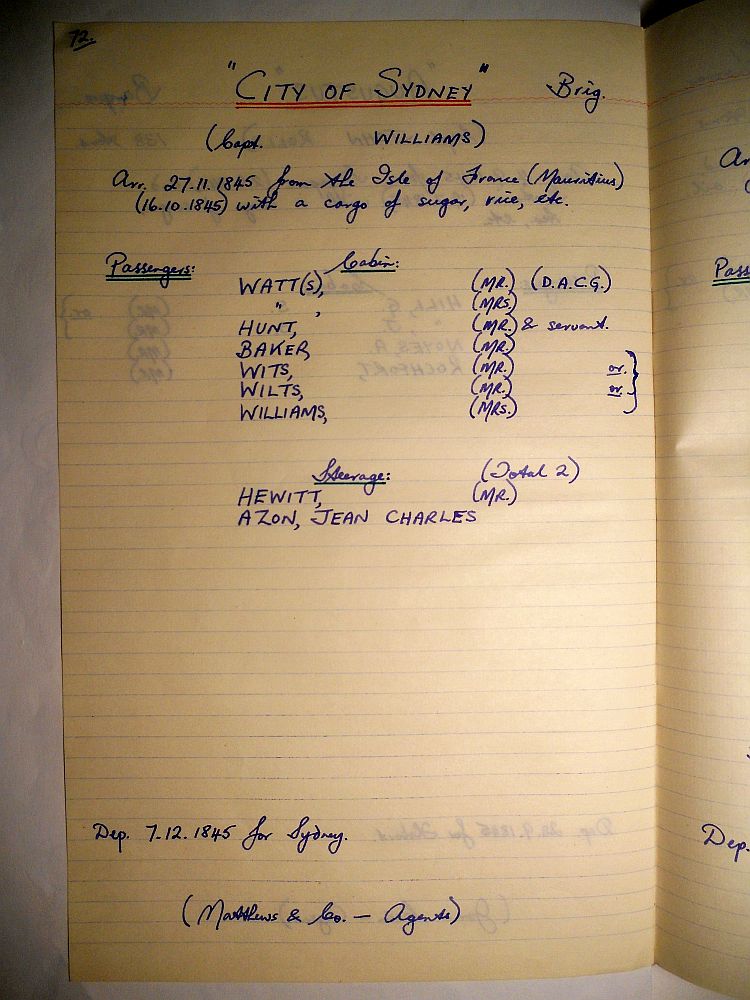 72.
"CITY OF SYDNEY" Brig.
(Capt. WILLIAMS)
Arr. 27.11.1845 from the Isle of France (Mauritius)
(16.10.1845) with a cargo of sugar, rice, etc.
Passengers: Cabin:
WATT(S), (MR.) (D.A.C.G.)
" , (MRS.)
HUNT, (MR.) & servant.
BAKER, (MR.)
WITS, (MR.) or.
WILTS, (MR.) or.
WILLIAMS, (MRS.)
Steerage: (Total 2)
HEWITT, (MR.)
AZON, JEAN CHARLES
Dep. 7.12.1845 for Sydney.
(Matthews & Co. — Agents)
Ar
Pass
Dep.